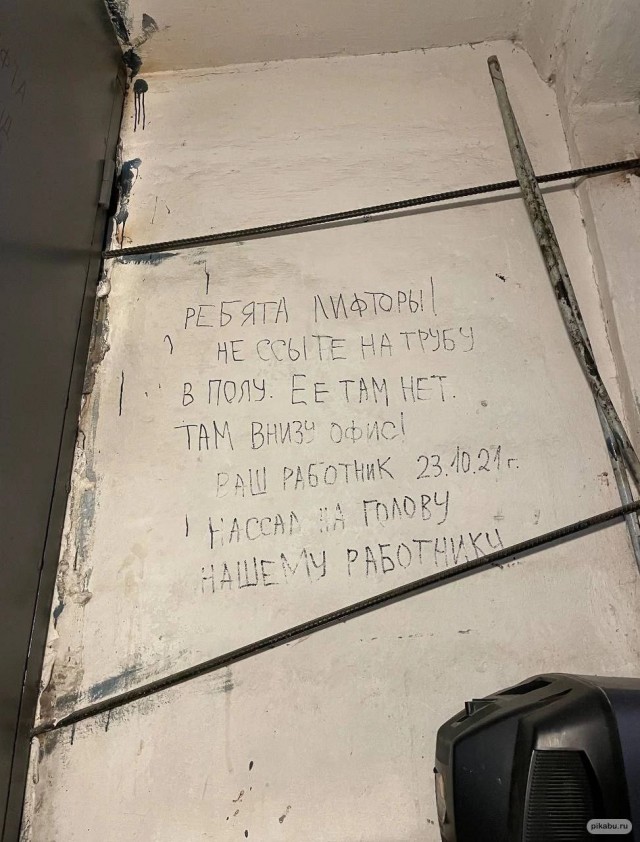 РЕБЯТА ЛИФТОРЫ!
НЕ ССЫТЕ НА ТРУБУ
В ПОЛУ. ЕЕ ТАМ НЕТ.
ТАМ ВНИЗУ ОФИС!
ВАШ РАБОТНИК 23.10.21 г.
НАССАЛ НА ГОЛОВУ
НАШЕМУ РАБОТНИКУ
pikabu.ru